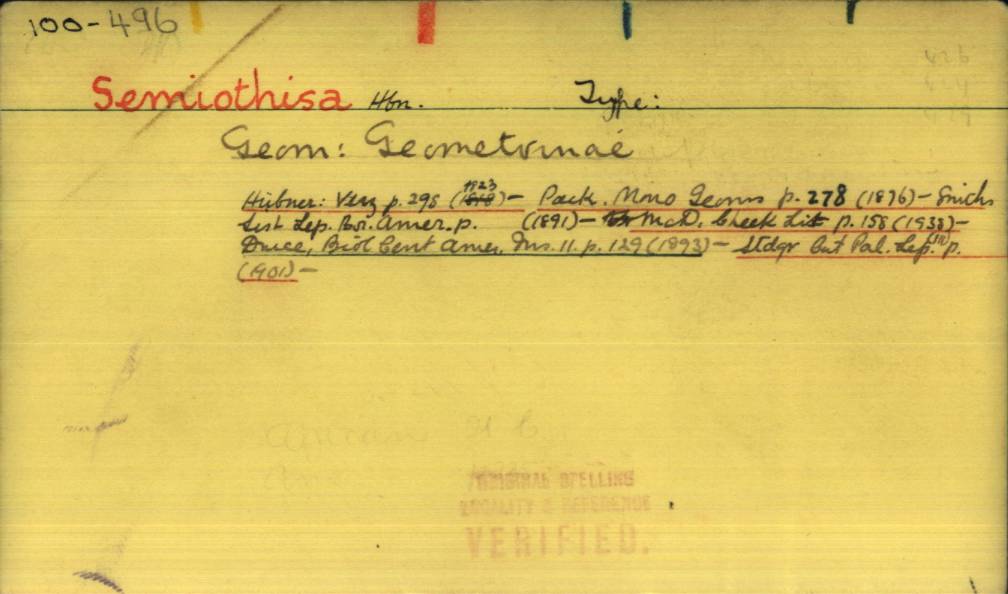 100-496
Semiothisa Hbn. Type:
Geom: Geometrinae
Hübner: Verz p. 298 (1818) 1823 — Pack. Mono Geoms p. 278 (1876) — Smiths
List Lep. Bor. Amer. p. (1891) — McD. Check List p. 158 (1938) —
Druce, Biol Cent Amer. Ins. 11. p. 129 (1893) — Stdgr Cat Pal. Lep. p.
(1901) —
ORIGINAL SPELLING
LOCALITY & REFERENCE
VERIFIED.